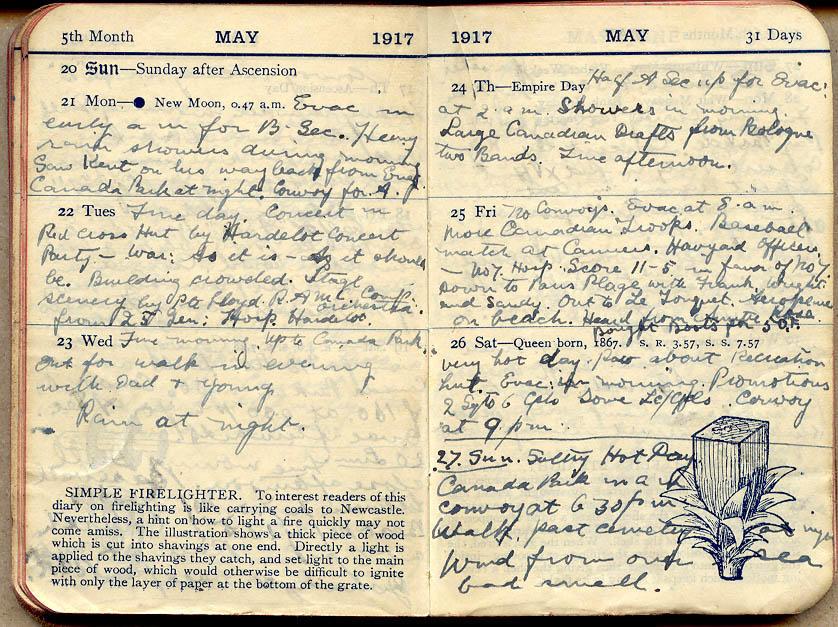 5th Month MAY 1917
20 Sun—Sunday after Ascension
21 Mon—● New Moon, 0.47 a.m. Evac in
early a m for B. Sec. Heavy
rain showers during morning
Saw Kent on his way back from Evac
Canada Park at night. Convoy for A.
22 Tues Fine day. Concert in
Red Cross Hut by Hardelot Concert
Party — War: As it is — As it should
be. Building crowded. Stage
scenery by Pte Lloyd R.A.M.C. Comp.
Orchestra
from 25 Gen: Hosp. Hardelot.
23 Wed Fine morning. Up to Canada Park
out for walk in evening
with Dad + Young
Rain at night.
SIMPLE FIRELIGHTER. To interest readers of this
diary on firelighting is like carrying coals to Newcastle.
Nevertheless, a hint on how to light a fire quickly may not
come amiss. The illustration shows a thick piece of wood
which is cut into shavings at one end. Directly a light is
applied to the shavings they catch, and set light to the main
piece of wood, which would otherwise be difficult to ignite
with only the layer of paper at the bottom of the grate.
1917 MAY 31 Days
24 Th—Empire Day Half A Sec up for Evac:
at 2 a.m. Showers in morning.
Large Canadian Drafts from Bologne
two Bands. Fine afternoon.
25 Fri No Convoys. Evac at 8 a.m.
More Canadian Troops. Baseball
match at Canners. Havyard Officers
— No 7. Hosp. Score 11-5 in favor of No 7
Down to Paris Plage with Frank, Wright
and Sandy. Out to Le Touquet. Aeroplane
on beach. Heard from
Bought Boots for 50F.
26 Sat—Queen born, 1867. S. R. 3.57, S. S. 7.57
Very hot day. Row about Recreation
hut. Evac: in morning. Promotions
2 Sgts 6 Cpls Dove Lc/Cpls. Convoy
at 9 pm.
27. Sun. Sultry Hot Day
Canada Park in a m
convoy at 6 30 pm
Walk past cemetery at night
Wind from over sea
bad smell.